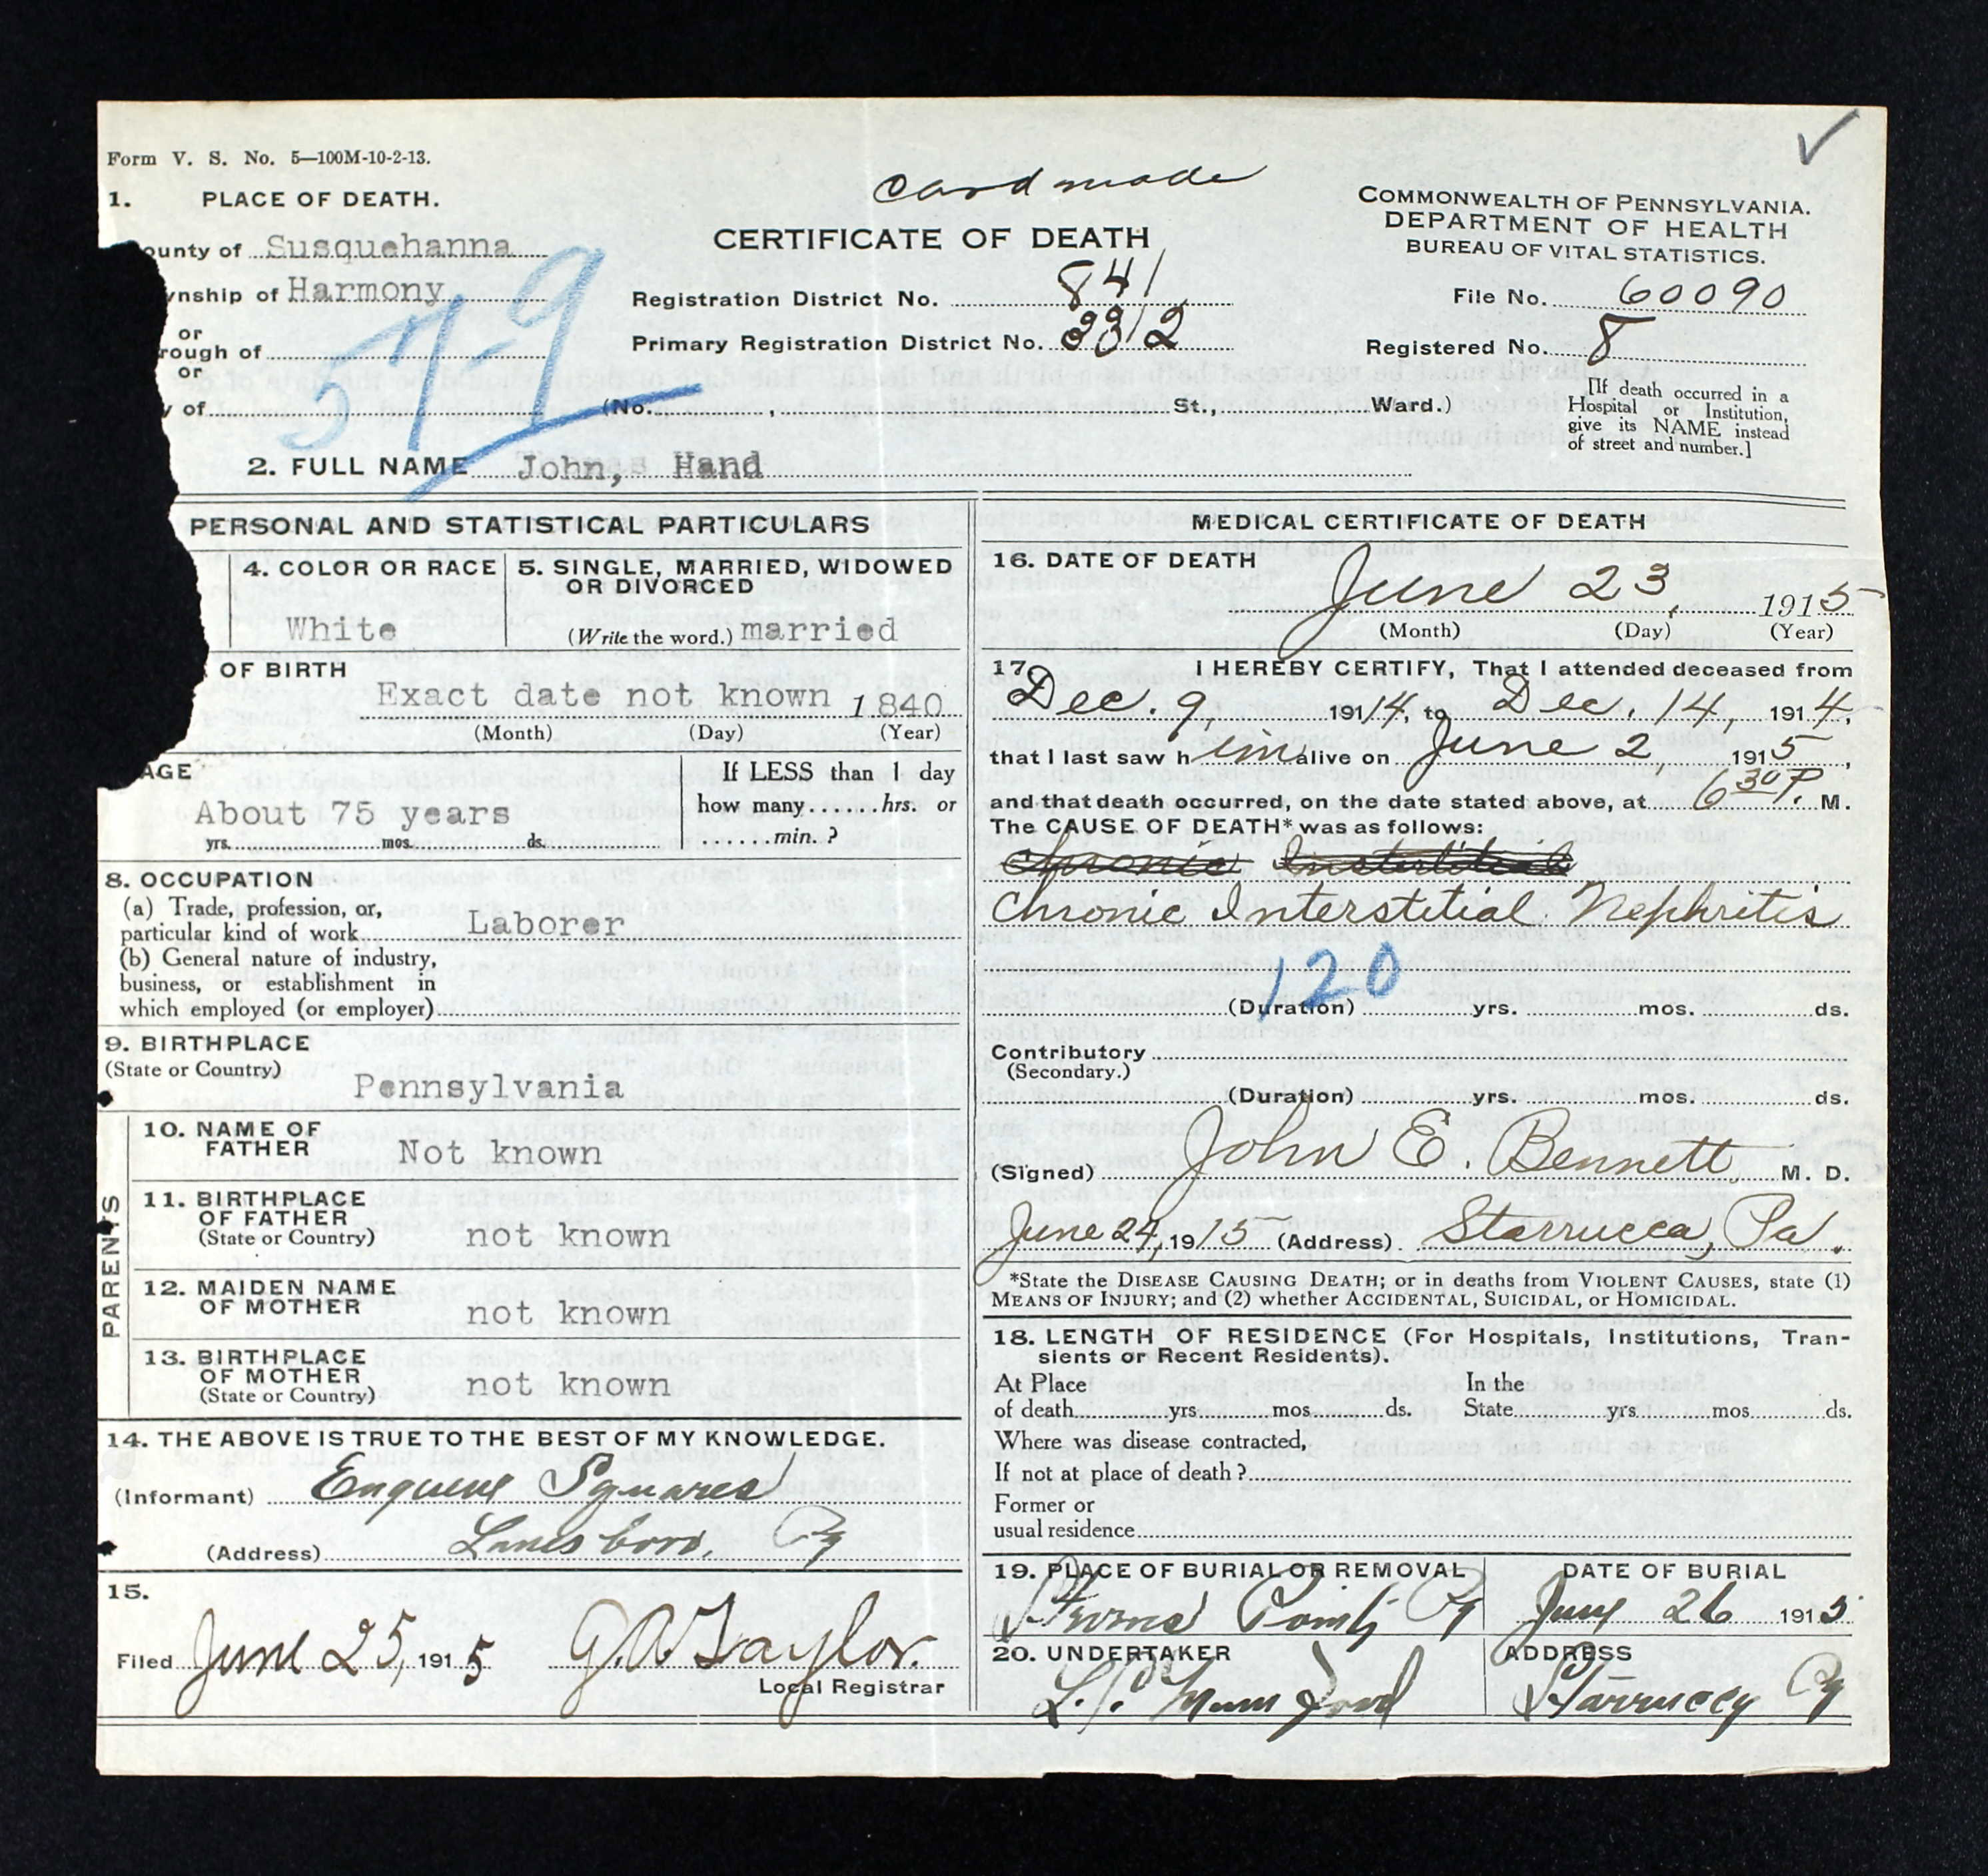 Form V. S. No. 5—100M-10-2-13.
card made
1. PLACE OF DEATH.
ounty of Susquehanna
wnship of Harmony
or
rough of
or
y of
57-9
(No. , St., Ward.)
CERTIFICATE OF DEATH
Registration District No. 841
Primary Registration District No. 3312
COMMONWEALTH OF PENNSYLVANIA.
DEPARTMENT OF HEALTH
BUREAU OF VITAL STATISTICS.
File No. 60090
Registered No. 8
[If death occurred in a
Hospital or Institution,
give its NAME instead
of street and number.]
2. FULL NAME John, Hand
PERSONAL AND STATISTICAL PARTICULARS
4. COLOR OR RACE
White
5. SINGLE, MARRIED, WIDOWED
OR DIVORCED
(Write the word.) married
OF BIRTH
Exact date not known 1840
(Month) (Day) (Year)
AGE
About 75 years
yrs. mos. ds.
If LESS than 1 day
how many hrs. or
min.?
8. OCCUPATION
(a) Trade, profession, or,
particular kind of work Laborer
(b) General nature of industry,
business, or establishment in
which employed (or employer)
9. BIRTHPLACE
(State or Country)
Pennsylvania
PARENTS
10. NAME OF
FATHER Not known
11. BIRTHPLACE
OF FATHER
(State or Country) not known
12. MAIDEN NAME
OF MOTHER not known
13. BIRTHPLACE
OF MOTHER
(State or Country) not known
14. THE ABOVE IS TRUE TO THE BEST OF MY KNOWLEDGE.
(Informant) Squares
(Address) Lanesboro, Pa
15.
Filed June 25, 1915 G.A. Taylor.
Local Registrar
MEDICAL CERTIFICATE OF DEATH
16. DATE OF DEATH
June 23, 1915
(Month) (Day) (Year)
17. I HEREBY CERTIFY, That I attended deceased from
Dec. 9, 1914, to Dec. 14, 1914,
that I last saw him alive on June 2, 1915,
and that death occurred, on the date stated above, at 6 30 P. M.
The CAUSE OF DEATH* was as follows:
Chronic Interstitial Nephritis
120
(Duration) yrs. mos. ds.
Contributory
(Secondary.)
(Duration) yrs. mos. ds.
(Signed) John E. Bennett, M. D.
June 24, 1915 (Address) Starrucca, Pa.
*State the DISEASE CAUSING DEATH; or in deaths from VIOLENT CAUSES, state (1)
MEANS OF INJURY; and (2) whether ACCIDENTAL, SUICIDAL, or HOMICIDAL.
18. LENGTH OF RESIDENCE (For Hospitals, Institutions, Tran-
sients or Recent Residents).
At Place In the
of death yrs. mos. ds. State yrs. mos. ds.
Where was disease contracted,
If not at place of death?
Former or
usual residence
19. PLACE OF BURIAL OR REMOVAL
Pa
DATE OF BURIAL
June 26 1915
20. UNDERTAKER
Mumford
ADDRESS
Starrucca Pa